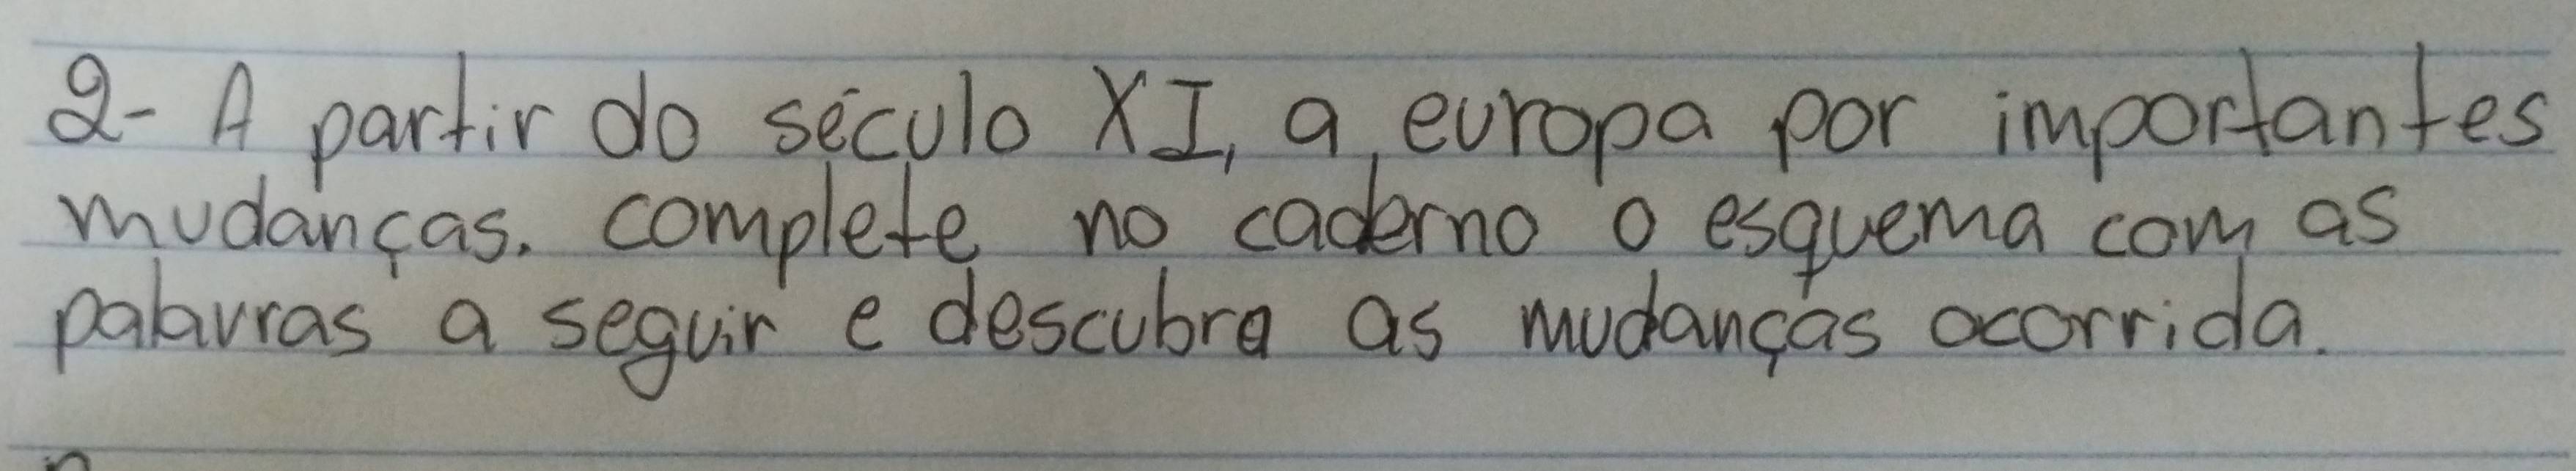 2- A partir do século XI, a europa por importantes
mudanças. complete no caderno o esquema com as
palavras a seguir e descubra as mudanças ocorrida.